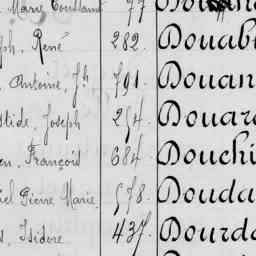 Marie Constant 77
ph, René 282. Douab
Antoine, Jh 791. Douan
tide, Joseph 254. Douar
en, François 684. Douchi
iel Pierre Marie. 578. Douda
s, Isidore 437. Dourd